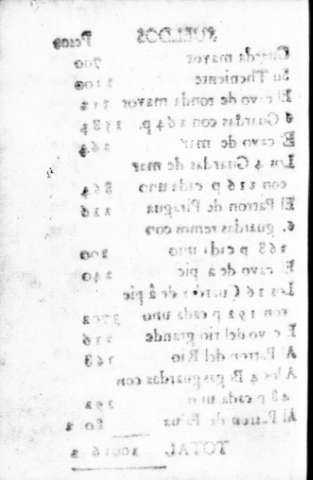 SUELDOS Pesos
Guarda mayor 700
Su Theniente
El cavo de ronda mayor
6 Guardas con 264 p. 1584
El cavo de mar 264
Los 4 Guardas de mar
con 216 p cada uno 864
El Patron de Piragua 216
6. guardas remos con
168 p cada uno
El cavo de a pie 240
Los 16 Guardas de â pie
con 192 p cada uno 3072
El cavo del rio grande 216
A Patron del Rio 168
A los 4 guardas con
48 p cada uno 192
Al Patron de 80 2
TOTAL 2